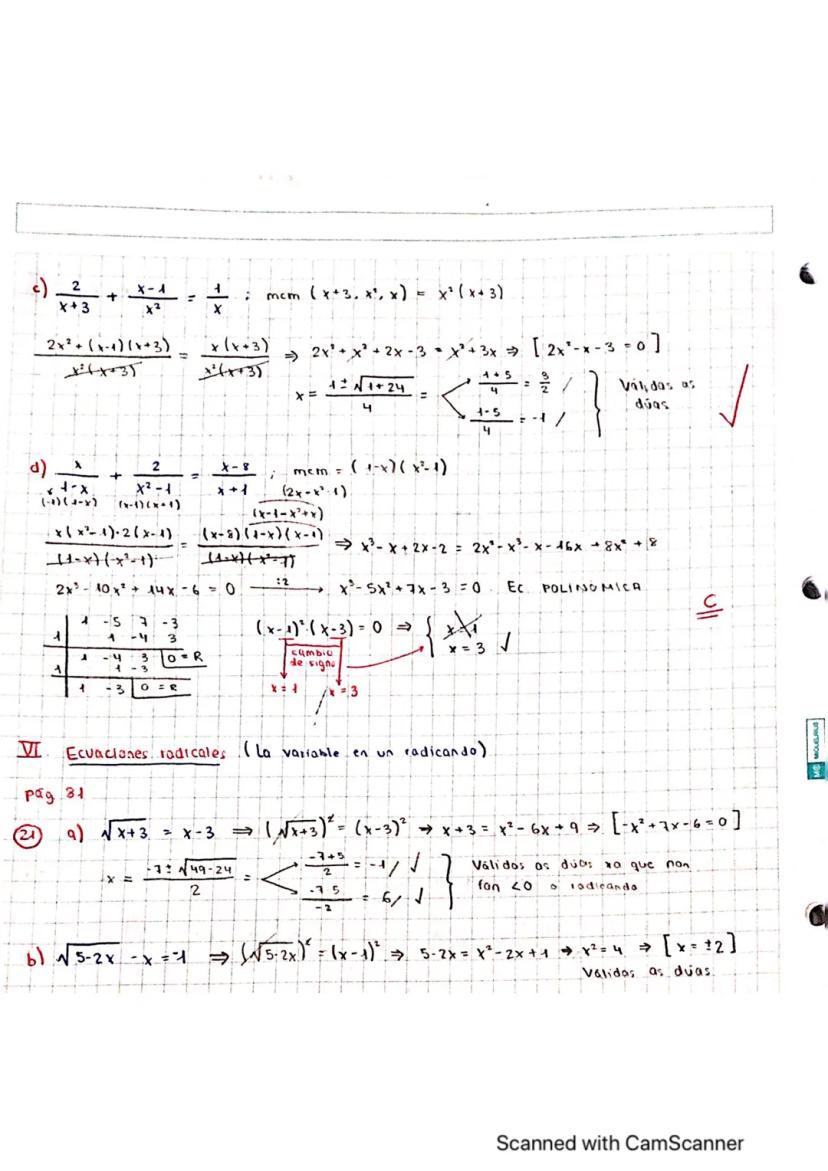 c) 2/(x+3) + (x-1)/x² = 1/x ; mcm (x+3, x², x) = x²(x+3)
(2x² + (x-1)(x+3))/(x²(x+3)) = (x(x+3))/(x²(x+3)) ⇒ 2x² + x² + 2x - 3 = x² + 3x ⇒ [2x² - x - 3 = 0]
x = (1 ± √(1+24))/4 = < (1+5)/4 = 3/2 / (1-5)/4 = -1 / } Válidas as dúas
d) x/(1-x) + 2/(x²-1) = (x-8)/(x+1) ; mcm = (1-x)(x²-1)
(-1)(1-x) (x-1)(x+1) (2x-x²-1)
(x-1-x²+x)
(x(x²-1)+2(x-1))/((1-x)(-x²-1)) = ((x-8)(1-x)(x-1))/((1-x)(x²-1)) ⇒ x³ - x + 2x - 2 = 2x² - x³ - x - 16x + 8x² + 8
2x³ - 10x² + 14x - 6 = 0 :2 → x³ - 5x² + 7x - 3 = 0. Ec POLINÓMICA
C
1 -5 7 -3
1 1 -4 3
1 -4 3 |0 = R
1 1 -3
1 -3 |0 = R
(x-1)²·(x-3) = 0 ⇒ { x=1 x = 3 ✓
cambio
de signo
x = 1 / x = 3
VI Ecuaciones radicales (La variable en un radicando)
pág 31
21 a) √(x+3) = x-3 ⇒ (√(x+3))² = (x-3)² → x+3 = x² - 6x + 9 ⇒ [-x² + 7x - 6 = 0]
x = (-7 ± √(49-24))/2 = < (-7+5)/2 = -1 / ✓ (-7 5)/-2 = 6 / ✓ } Válidas as dúas xa que non fan <0 o radicando
b) √(5-2x) - x = -1 ⇒ (√(5-2x))² = (x-1)² ⇒ 5-2x = x² - 2x + 1 → x² = 4 ⇒ [x = ±2]
Válidas as dúas.
MIQUELRIUS
Scanned with CamScanner